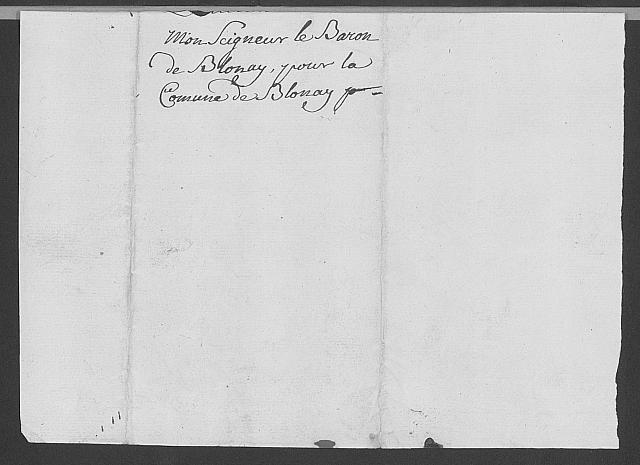 Mon Seigneur le Baron
de Blonay, pour la
Comune de Blonay p